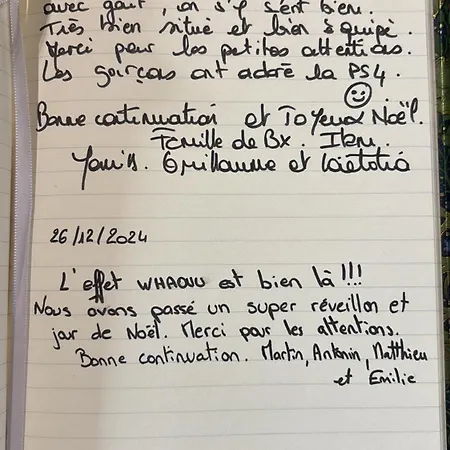 avec goût, on s'y sent bien.
Très bien situé et bien équipé.
Merci pour les petites attentions.
Les garçons ont adoré la PS4.
Bonne continuation et Joyeux Noël.
Famille de Bx.
Yanis. Guillaume et Laëtitia
26/12/2024
L'effet WHAOUU est bien là!!!
Nous avons passé un super réveillon et
jour de Noël. Merci pour les attentions.
Bonne continuation. Martin, Antonin, Matthieu
et Emilie